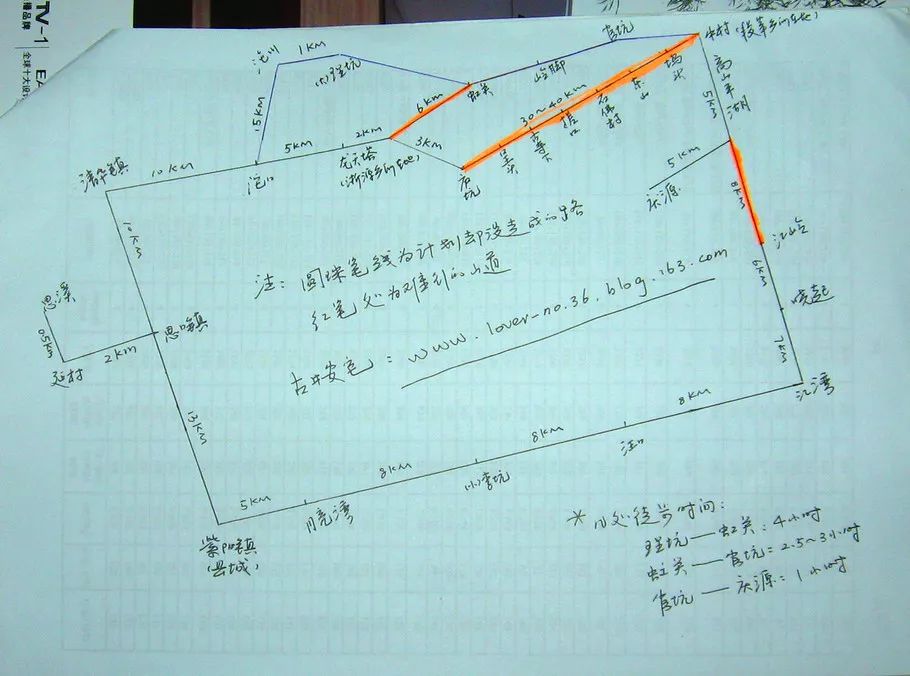 TV-1
全球十大设计
1KM
官坑
沱川
小理坑
虹关
岭脚
6KM
30~40KM
1.5KM
5KM
2KM
3KM
5KM
10KM
清华镇
沱口
龙天塔
(浙源乡所在地)
石佛村
东山
5KM
庆源
8KM
江岭
10KM
注: 圆珠笔线为计划却没走成的路
红笔处为难行的山道
思溪
0.5KM
延村
2KM
思口镇
6KM
晓起
7KM
古井安色: www.lover-no.36.blog.163.com
江湾
13KM
8KM
8KM
汪口
8KM
小李坑
5KM
月亮湾
紫阳镇
(县城)
*几处徒步时间:
理坑——虹关: 4小时
虹关——官坑: 2.5~3小时
官坑——庆源: 1小时